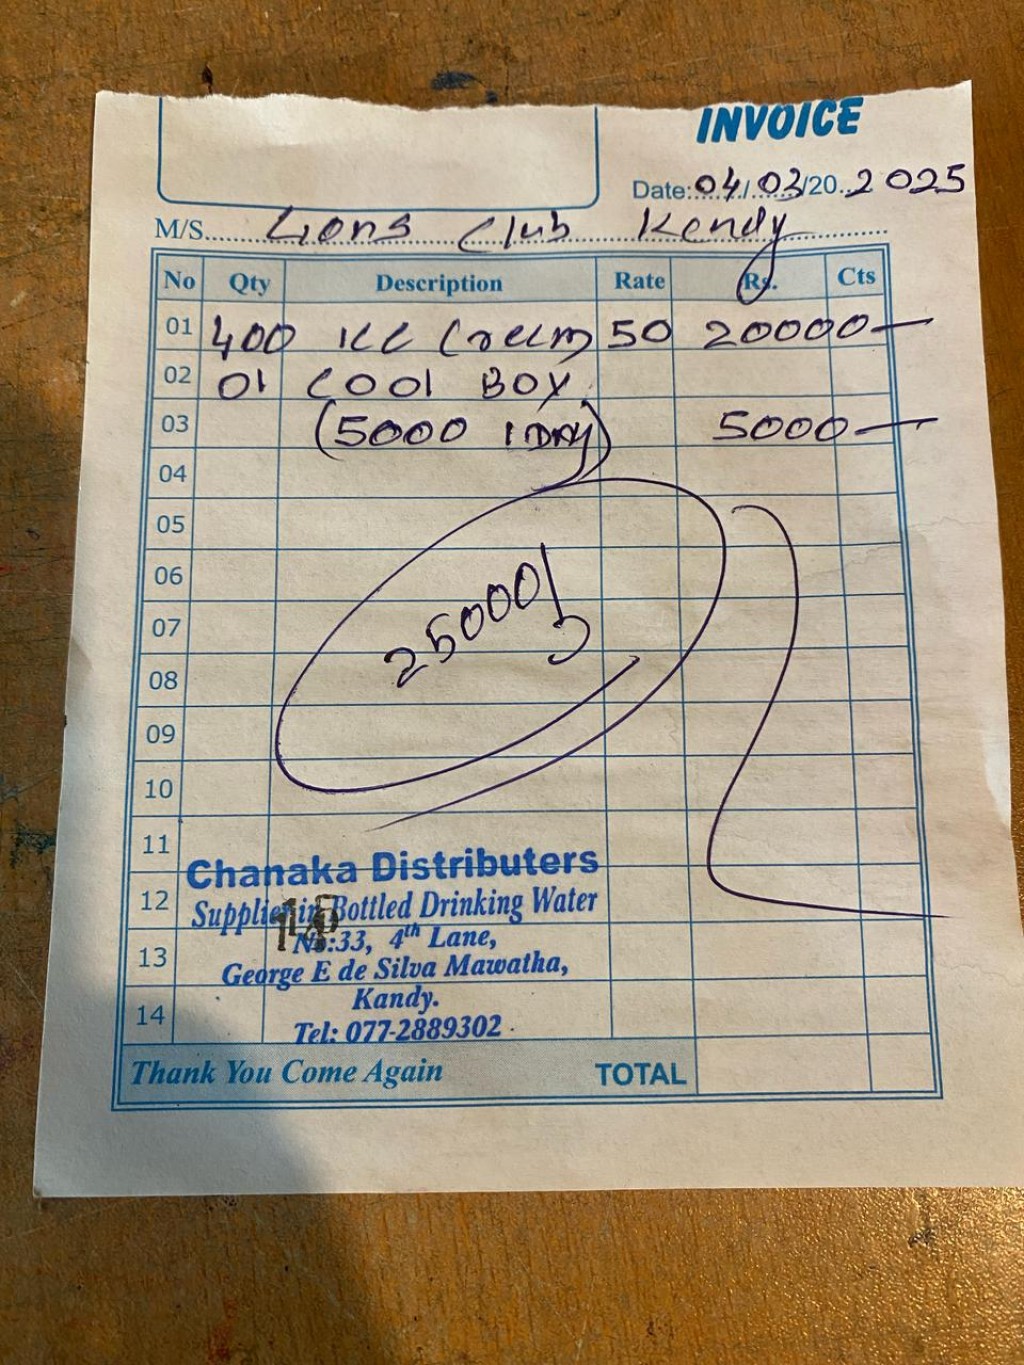 INVOICE
Date:04/03/20..2025
M/S Lions Club Kandy
No Qty Description Rate Rs. Cts
01 400 ICE Cream 50 20000—
02 01 COOl BOX
03 (5000 1 DAY) 5000—
04
05
06
07
25000/
08
09
10
11
Chanaka Distributers
12 Supplier in Bottled Drinking Water
No:33, 4th Lane,
13 George E de Silva Mawatha,
Kandy.
14 Tel: 077-2889302
Thank You Come Again TOTAL